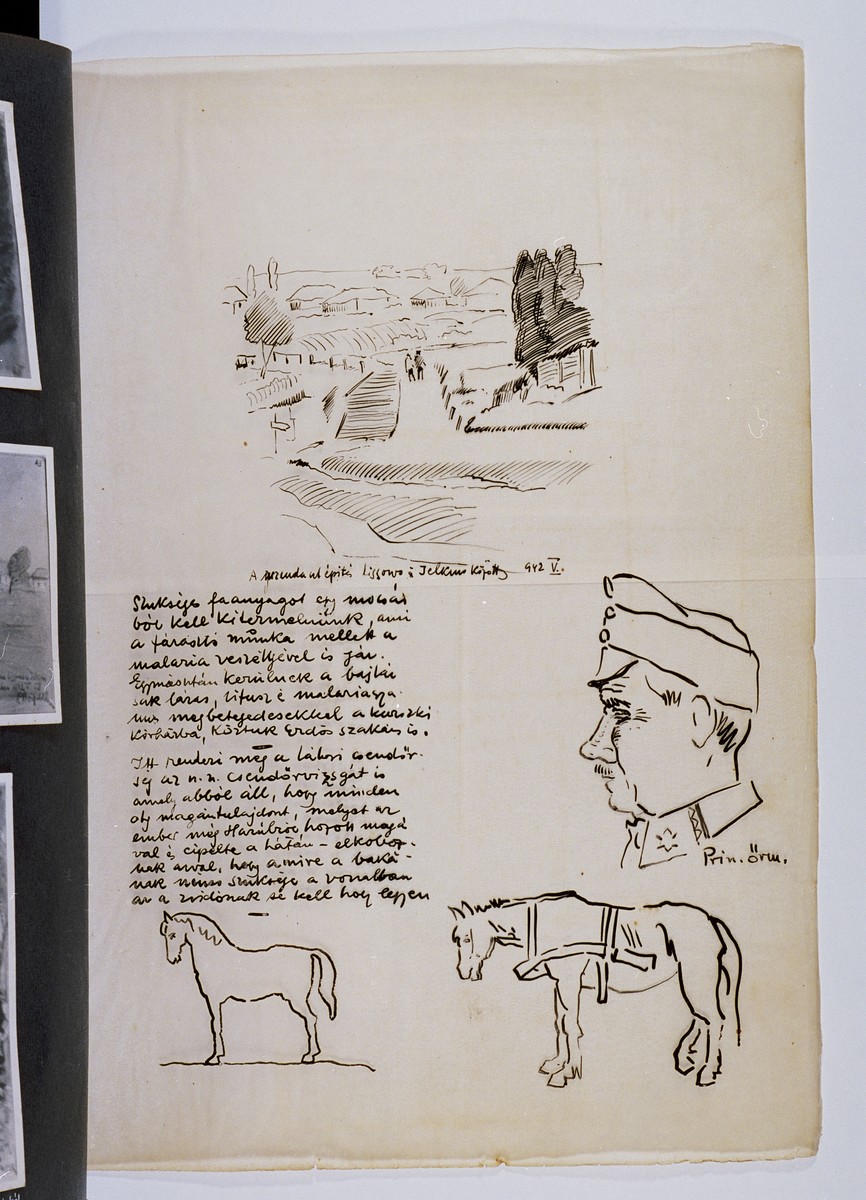 A gerendaút építés Lissowo és Jelkino között 942 V.
Szükséges faanyagot egy mocsár
ból kell kitermelnünk, ami
a fárasztó munka mellett a
malaria veszéllyével is jár.
Egymásután kerülnek a bajtár
sak lázas, tifusz é malariagya
nus megbetegedésekkel a kurszki
kórházba, köztük Erdős szakasz is.
Itt rendezi meg a tábori csendőr-
ség az u. n. csendőrvizsgát is
amely abból áll, hogy minden
oly magántulajdont, melyet az
ember még Harúbról hozott magá
val és cipelte a hátán – elkoboz-
nak azzal, hogy amire a baká-
nak nincs szüksége a vonalban
az a zsidónak se kell hogy legyen
Prin. őrm.